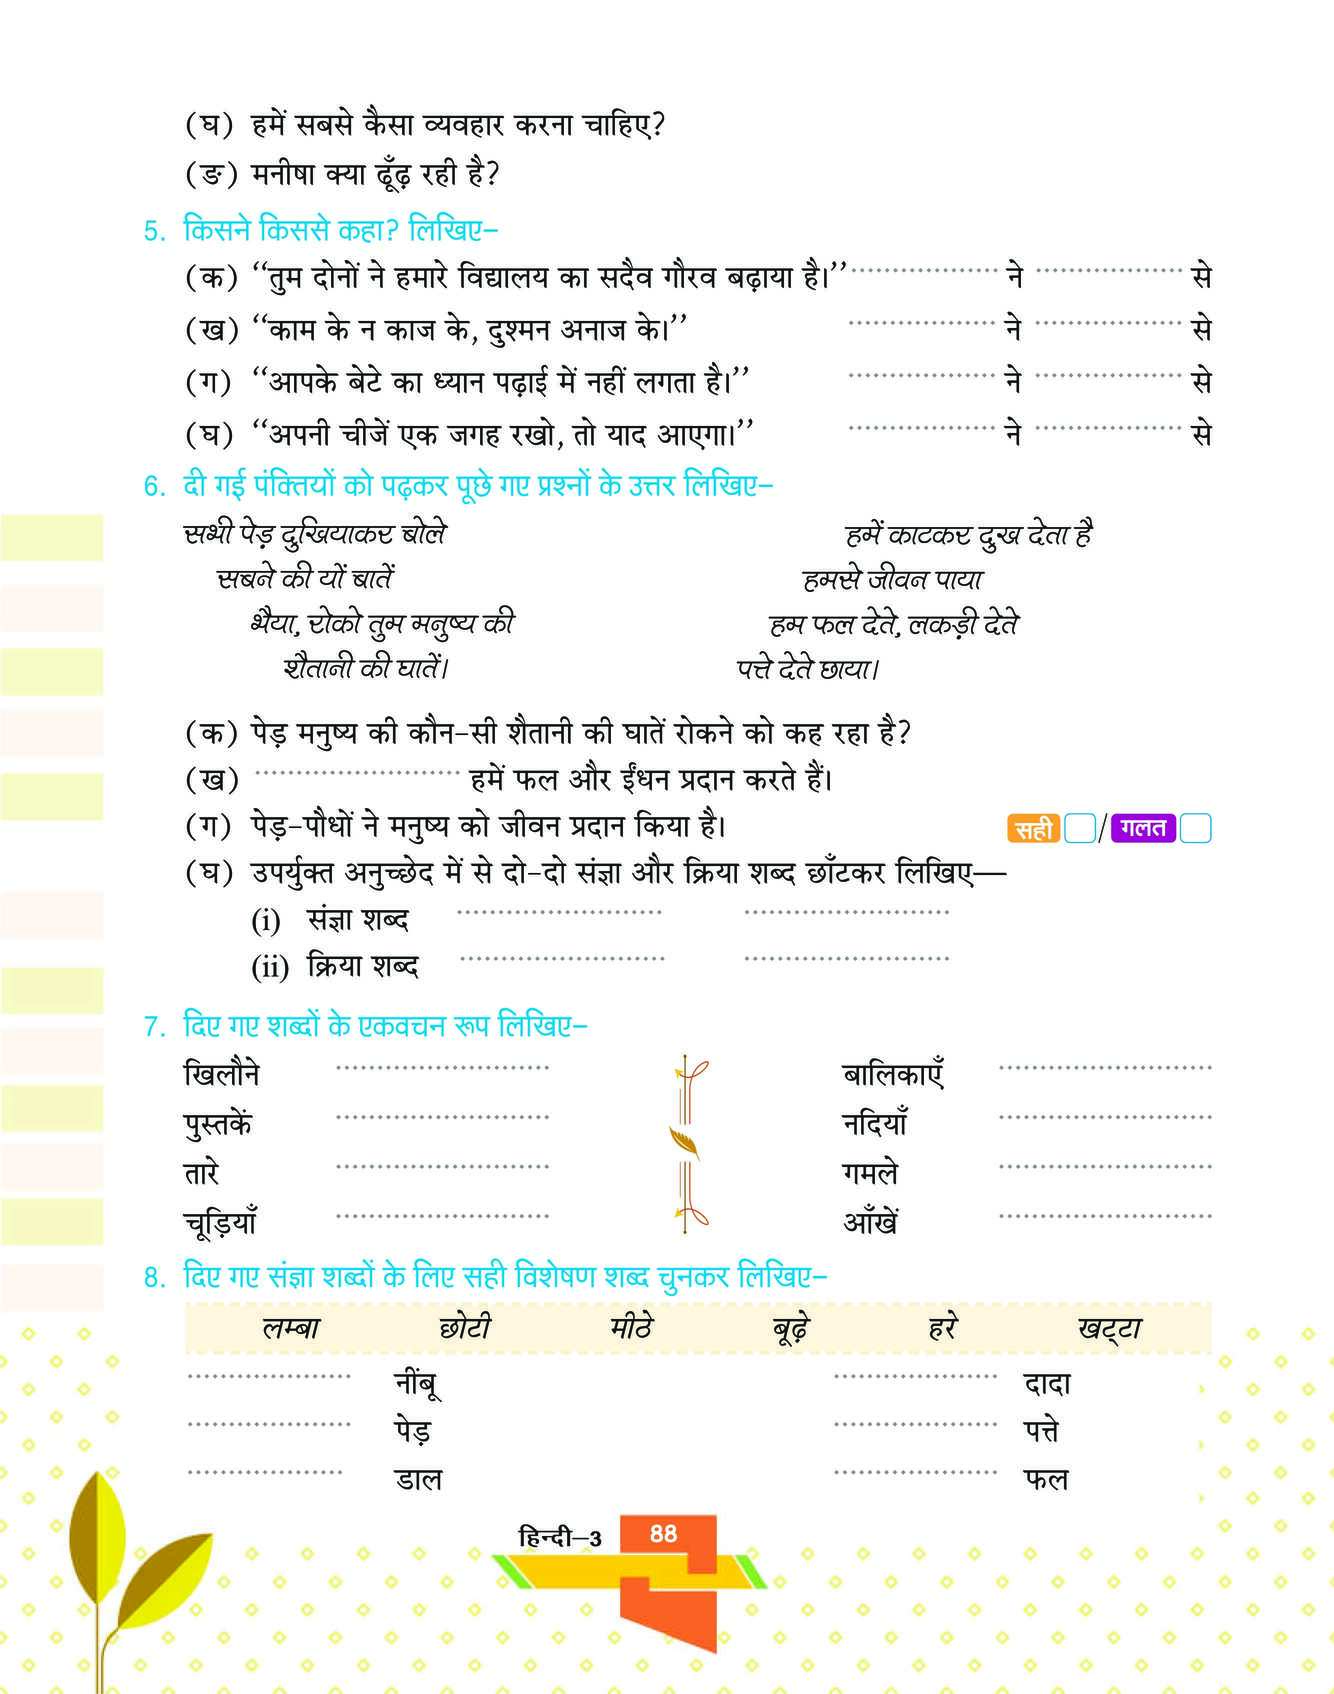 (घ) हमें सबसे कैसा व्यवहार करना चाहिए?
(ङ) मनीषा क्या ढूँढ़ रही है?
5. किसने किससे कहा? लिखिए–
(क) ‘‘तुम दोनों ने हमारे विद्यालय का सदैव गौरव बढ़ाया है।’’ .................. ने .................. से
(ख) ‘‘काम के न काज के, दुश्मन अनाज के।’’ .................. ने .................. से
(ग) ‘‘आपके बेटे का ध्यान पढ़ाई में नहीं लगता है।’’ .................. ने .................. से
(घ) ‘‘अपनी चीजें एक जगह रखो, तो याद आएगा।’’ .................. ने .................. से
6. दी गई पंक्तियों को पढ़कर पूछे गए प्रश्नों के उत्तर लिखिए–
सभी पेड़ दुखियाकर बोले
सबने की यों बातें
भैया, रोको तुम मनुष्य की
शैतानी की घातें।
हमें काटकर दुख देता है
हमसे जीवन पाया
हम फल देते, लकड़ी देते
पत्ते देते छाया।
(क) पेड़ मनुष्य की कौन-सी शैतानी की घातें रोकने को कह रहा है?
(ख) ......................... हमें फल और ईंधन प्रदान करते हैं।
(ग) पेड़-पौधों ने मनुष्य को जीवन प्रदान किया है। सही / गलत
(घ) उपर्युक्त अनुच्छेद में से दो-दो संज्ञा और क्रिया शब्द छाँटकर लिखिए—
(i) संज्ञा शब्द ......................... .........................
(ii) क्रिया शब्द ......................... .........................
7. दिए गए शब्दों के एकवचन रूप लिखिए–
खिलौने .......................... बालिकाएँ ..........................
पुस्तकें .......................... नदियाँ ..........................
तारे .......................... गमले ..........................
चूड़ियाँ .......................... आँखें ..........................
8. दिए गए संज्ञा शब्दों के लिए सही विशेषण शब्द चुनकर लिखिए–
लम्बा छोटी मीठे बूढ़े हरे खट्टा
.................... नींबू .................... दादा
.................... पेड़ .................... पत्ते
................... डाल .................... फल
हिन्दी–3 88